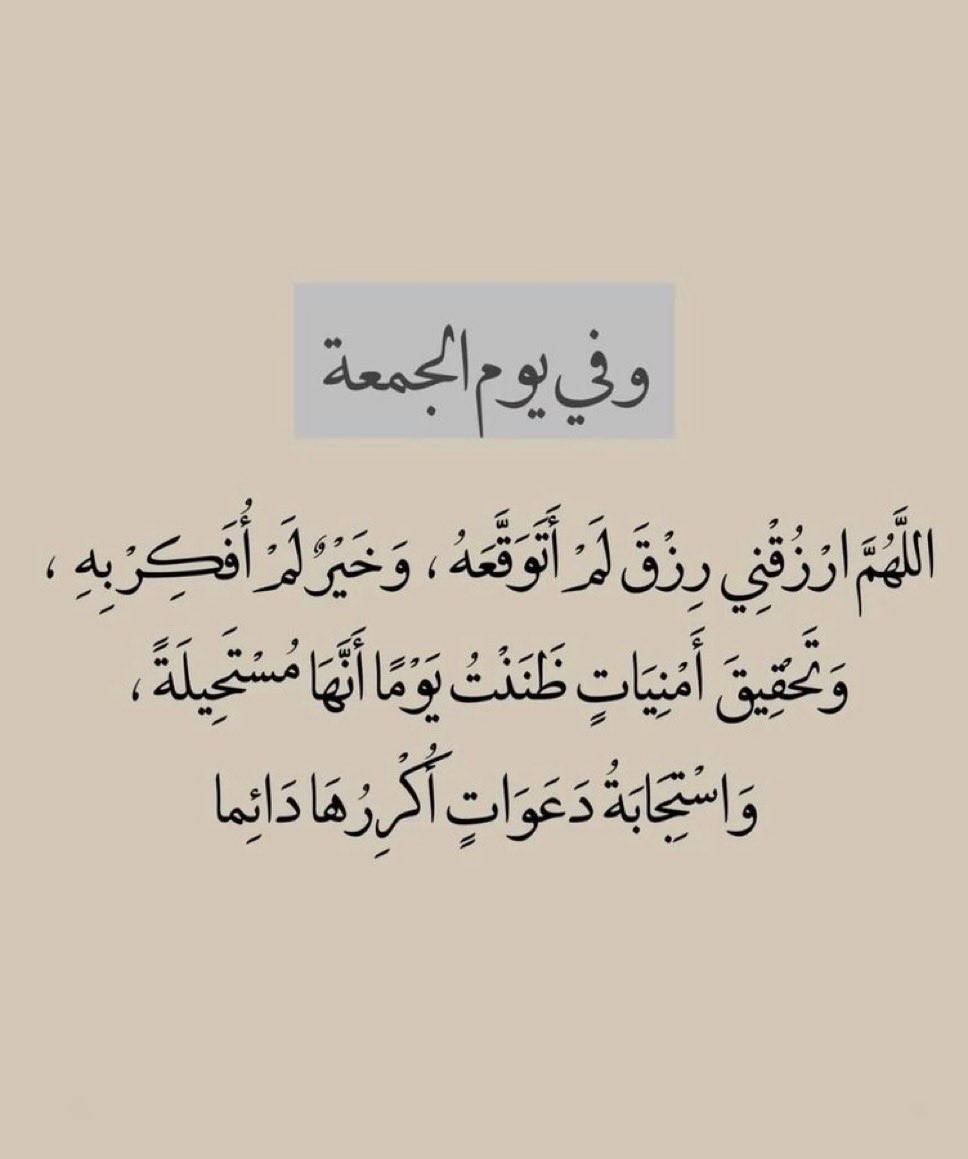 وفي يوم الجمعة
اللَّهُمَّ ارْزُقْنِي رِزْقَ لَمْ أَتَوَقَّعَهُ ، وَخَيْرٌ لَمْ أُفَكِرْ بِهِ ،
وَتَحْقِيقَ أَمْنِيَاتٍ ظَنَنْتُ يَوْمًا أَنَّهَا مُسْتَحِيلَةً ،
وَاسْتِجَابَةُ دَعَوَاتٍ أُكْرِرُهَا دَائِما